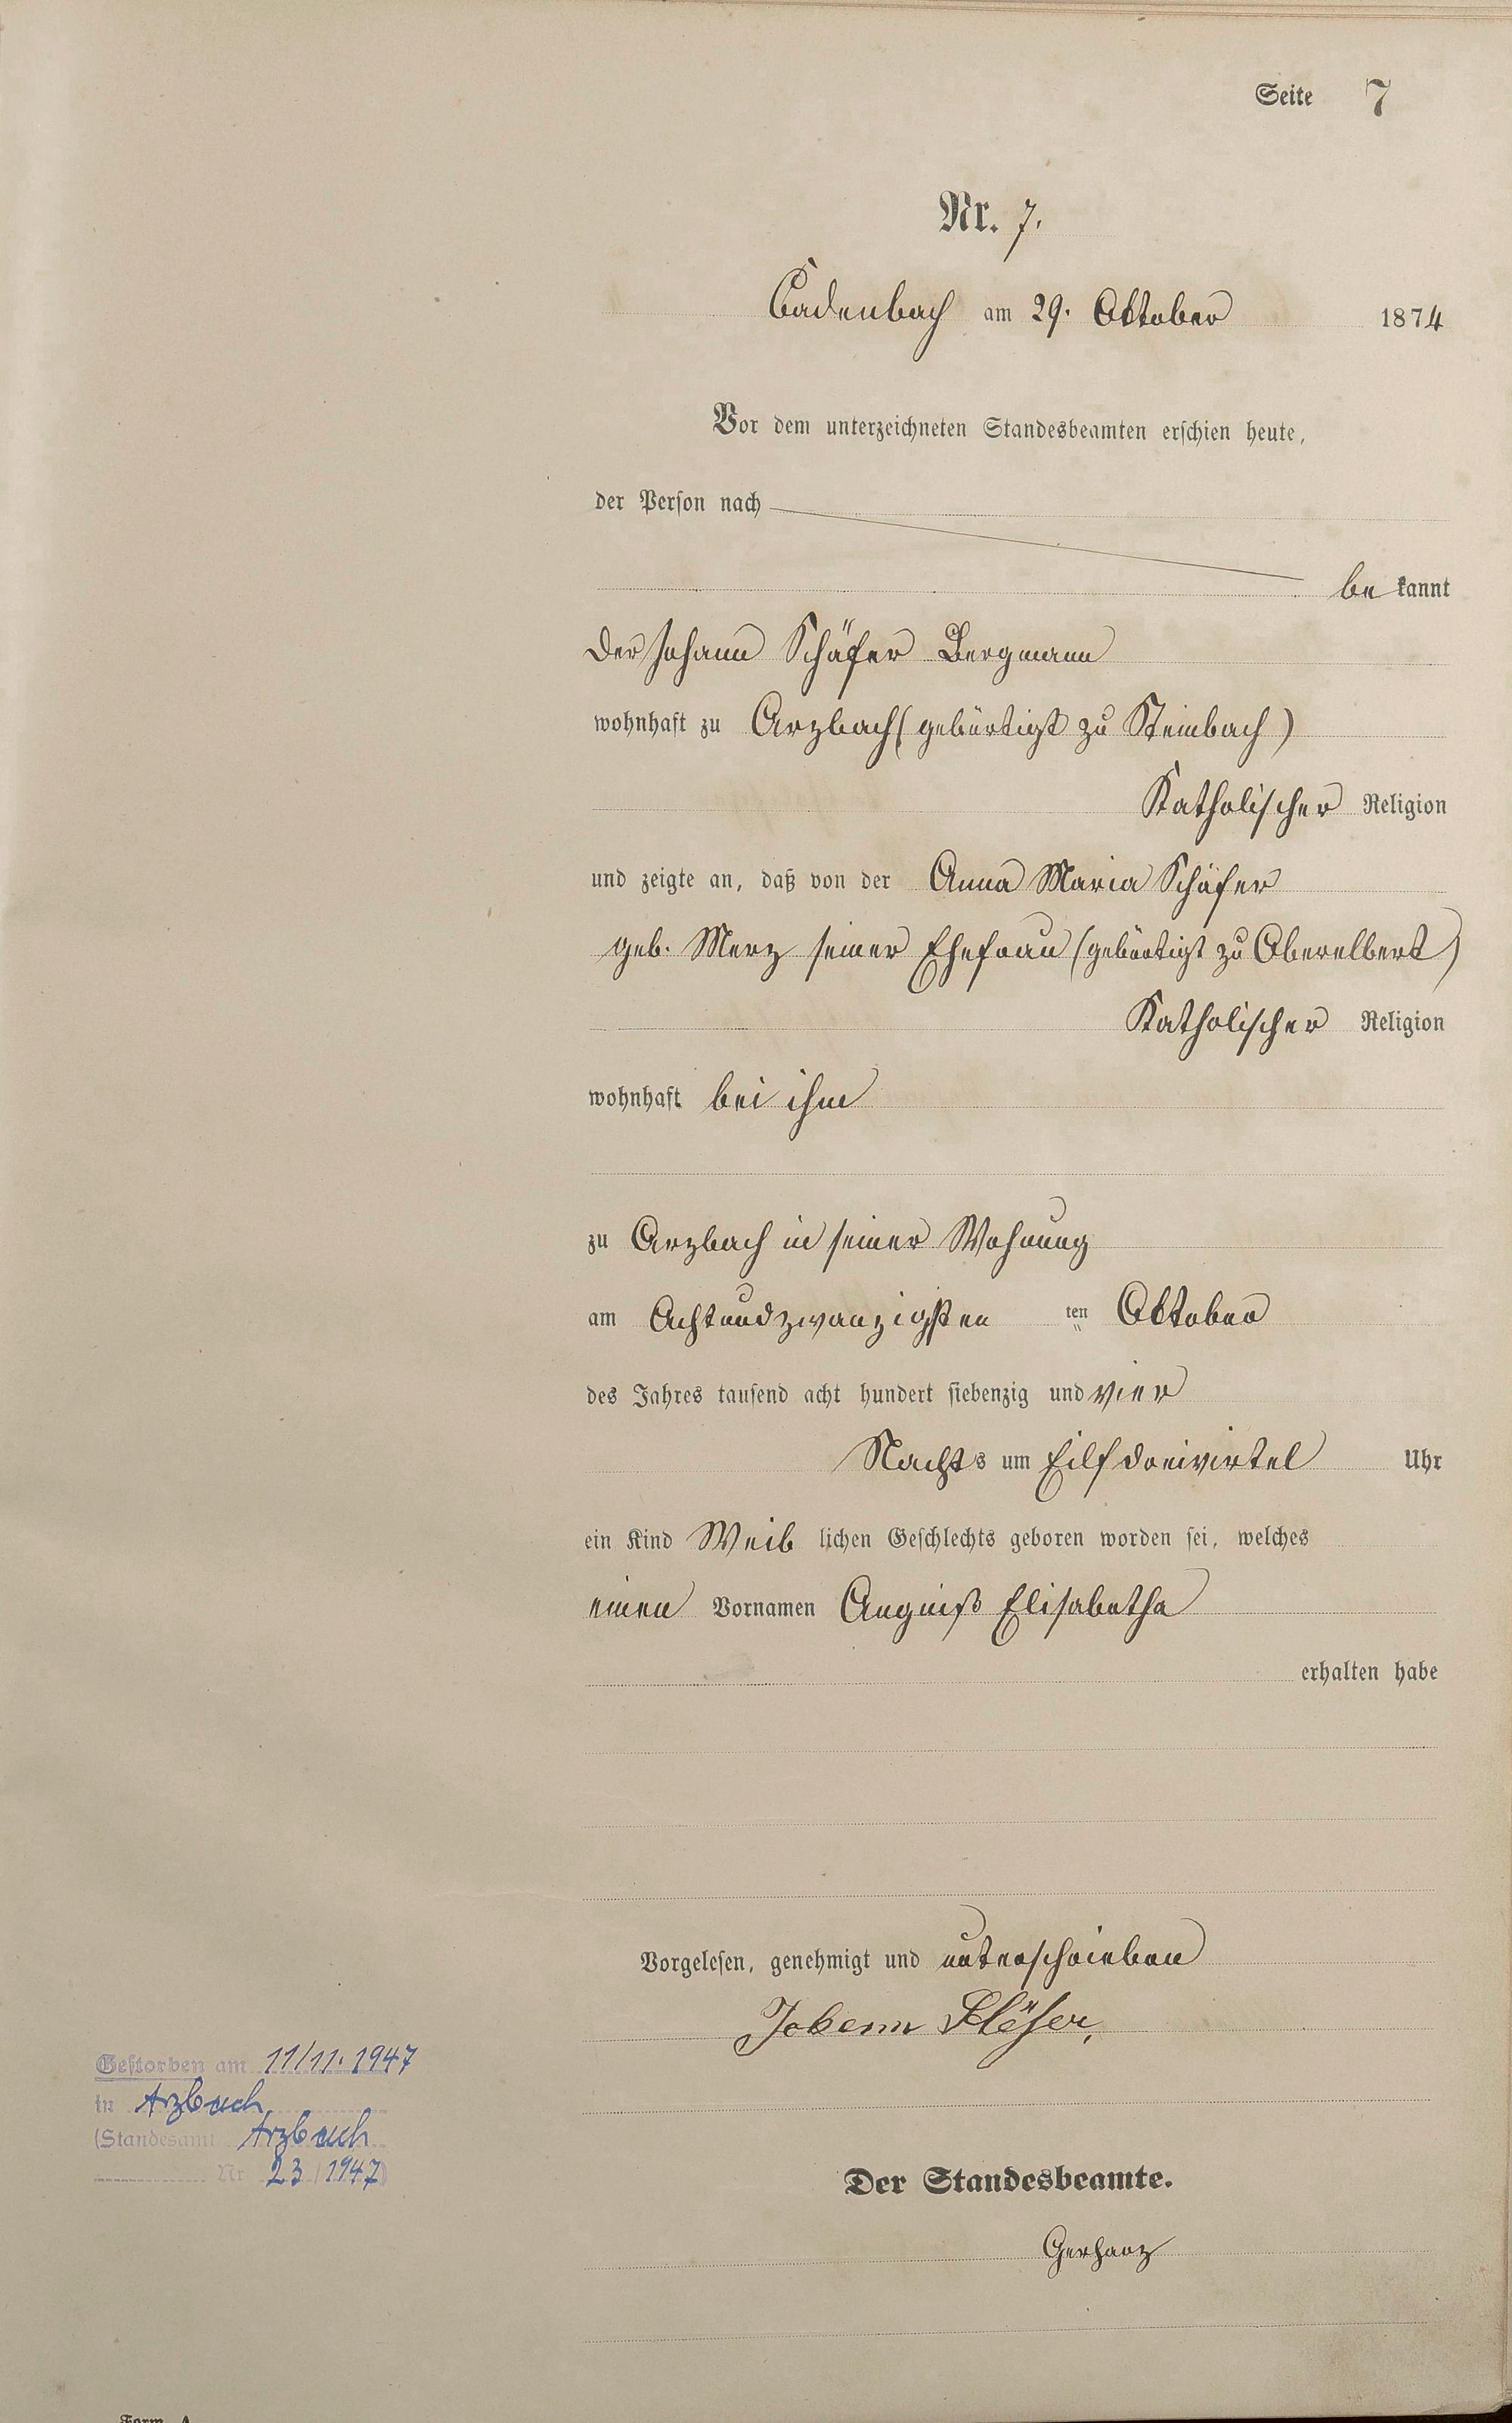 Seite 7
Nr. 7.
Cadenbach am 29. Oktober 1874
Vor dem unterzeichneten Standesbeamten erschien heute,
der Person nach
be kannt
der Johann Schäfer Bergmann
wohnhaft zu Arzbach (gebürtigt zu Steinbach)
Katholischer Religion
und zeigte an, daß von der Anna Maria Schäfer
geb. Merz seiner Ehefrau (gebürtigt zu Oberelbert)
Katholischer Religion
wohnhaft bei ihm
zu Arzbach in seiner Wohnung
am Achtundzwanzigsten ten Oktober
des Jahres tausend acht hundert siebenzig und vier
Nachts um Eilf dreivirtel Uhr
ein Kind Weib lichen Geschlechts geboren worden sei, welches
einen Vornamen Angniß Elisabetha
erhalten habe
Vorgelesen, genehmigt und unterschrieben
Johann
Gestorben am 11/11. 1947
in Arzbach
(Standesamt Arzbach
Nr 23 / 1947)
Der Standesbeamte.
Gerharz